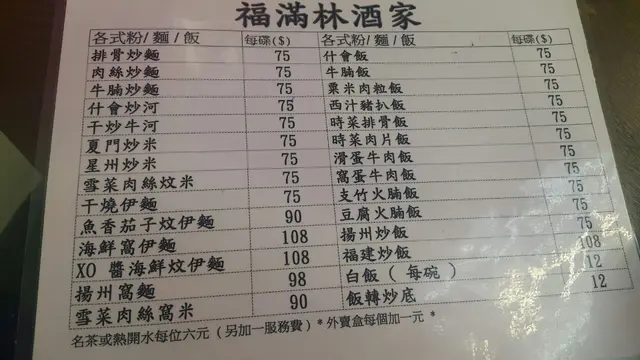 福滿林酒家
各式粉/麵/飯 每碟($) 各式粉/麵/飯 每碟($)
排骨炒麵 75 什會飯 75
肉絲炒麵 75 牛腩飯 75
牛腩炒麵 75 粟米肉粒飯 75
什會炒河 75 西汁豬扒飯 75
干炒牛河 75 時菜排骨飯 75
夏門炒米 75 時菜肉片飯 75
星州炒米 75 滑蛋牛肉飯 75
雪菜肉絲炆米 75 窩蛋牛肉飯 75
干燒伊麵 75 支竹火腩飯 75
魚香茄子炆伊麵 90 豆腐火腩飯 75
海鮮窩伊麵 108 揚州炒飯 75
XO 醬海鮮炆伊麵 108 福建炒飯 108
揚州窩麵 98 白飯 ( 每碗 ) 12
雪菜肉絲窩米 90 飯轉炒底 12
名茶或熱開水每位六元 ( 另加一服務費 ) * 外賣盒每個加一元 *